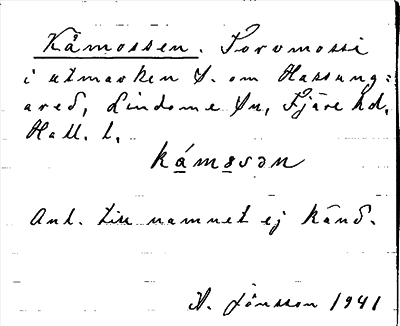 Kåmossen. Torvmosse
i utmarken S. om Hassung=
ared, Lindome sn, Fjäre hd,
Hall. l.
kåmosən
Anl. till namnet ej känd.
A. Jönsson 1941